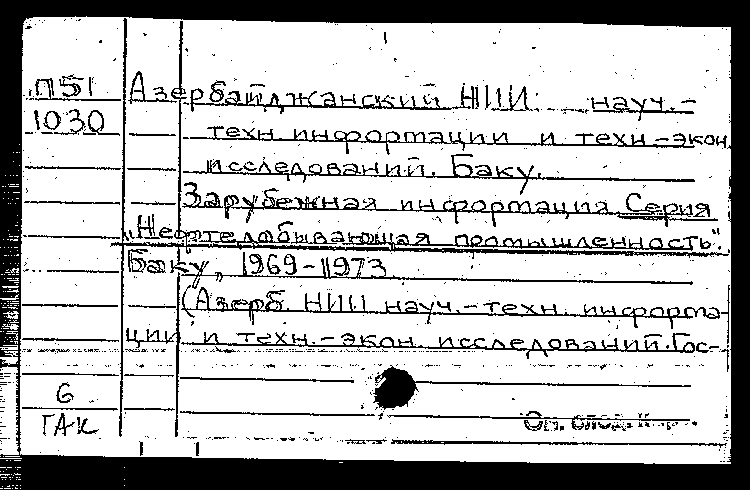 П51 Азербайджанский НИИ науч.-
1030 техн. информации и техн.-экон.
исследований. Баку.
Зарубежная информация. Серия
"Нефтедобывающая промышленность".
Баку, 1969-1973
(Азерб. НИИ науч.-техн. информа-
ции и техн.-экон. исследований. Гос-
6
ГАК
См. след. к